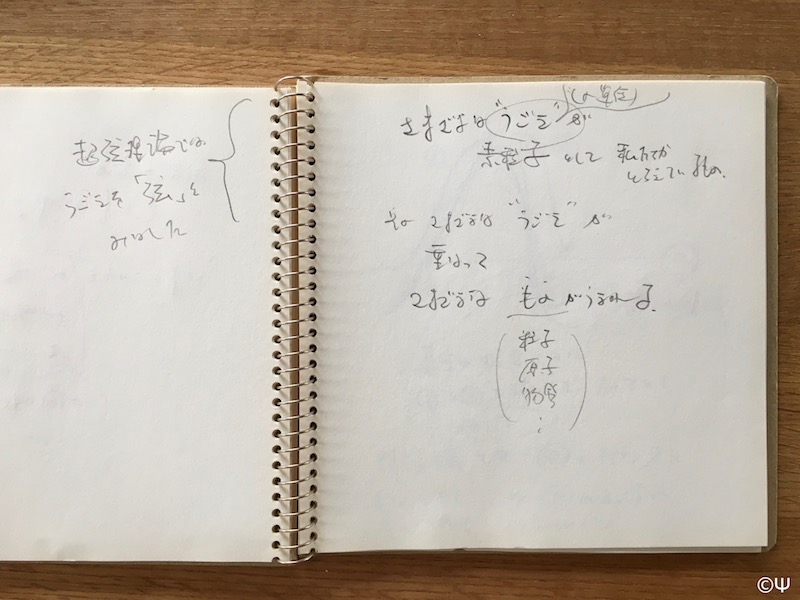 超弦理論では
うごきを「弦」と
みなした
(の単位)
さまざまな "うごき" が
素粒子 として 私たちが
とらえているもの.
その さまざまな "うごき" が
重なって
さまざまな ものがうまれる.
粒子
原子
物質
⋮
©Ψ